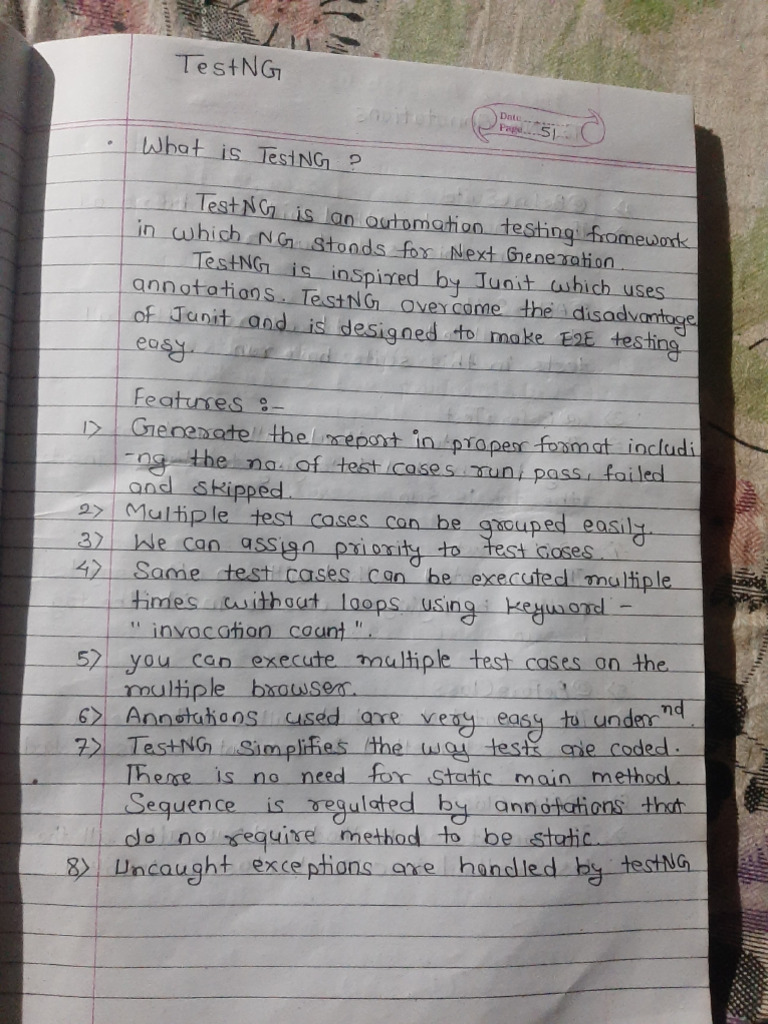 TestNG
Date
Page 51
• What is TestNG ?
TestNG is an automation testing framework
in which NG stands for Next Generation.
TestNG is inspired by Junit which uses
annotations. TestNG overcome the disadvantage
of Junit and is designed to make E2E testing
easy.
Features :-
1> Generate the report in proper format includi
-ng the no. of test cases run, pass, failed
and skipped.
2> Multiple test cases can be grouped easily.
3> We can assign priority to test cases.
4> Same test cases can be executed multiple
times without loops using keyword -
" invocation count ".
5> you can execute multiple test cases on the
multiple browser.
6> Annotations used are very easy to under nd.
7> TestNG simplifies the way tests are coded.
There is no need for static main method.
Sequence is regulated by annotations that
do no require method to be static.
8> Uncaught exceptions are handled by testNG